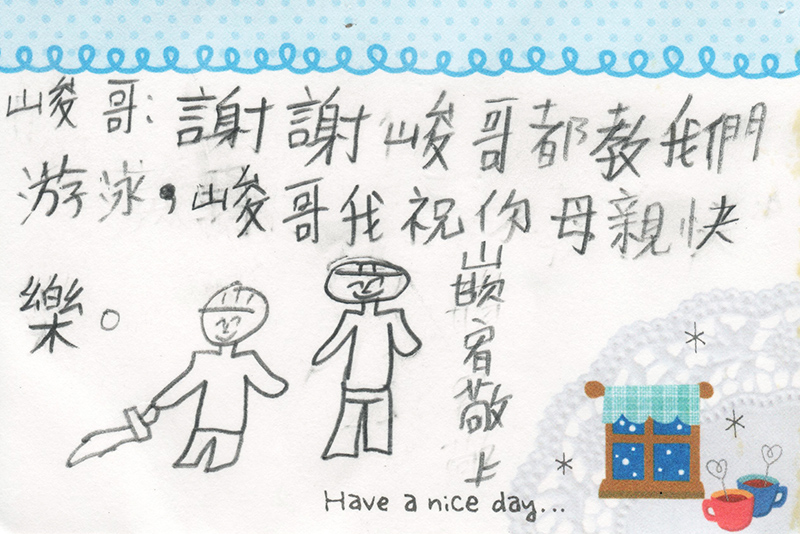 峻哥:謝謝峻哥都教我們
游泳,峻哥我祝你母親快
樂。
嵌宥敬上
Have a nice day...